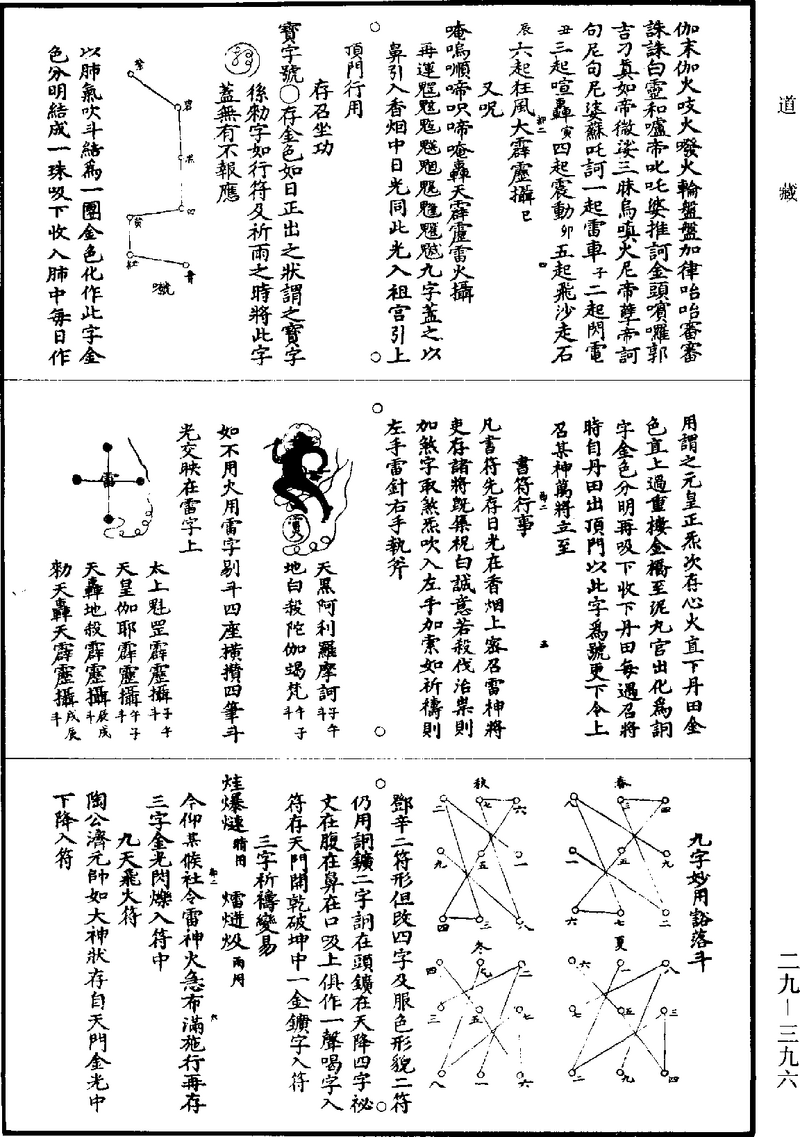 道藏
伽末伽火吱火㗶火輪盤盤加律咍咍審審
誅誅白靈和嚧帝叱吒婆推訶金頭嚬囉郭
吉刀真如帝微娑三昧烏嗔火尼帝孽帝訶
句尼句尼娑蘇吒訶一起雷車子二起閃電
丑三起喧轟寅四起震動卯五起飛沙走石
辰六起狂風大霹靂攝巳
又呪
唵嗚嚈啼呎啼唵轟天霹靂雷火攝
再運魁䰢魓魒九字蓋之以
鼻引入香烟中日光同此光入祖宮引上
頂門行用
存召坐功
寶字號〇存金色如日正出之狀謂之寶字
係勑字如行符及祈雨之時將此字
蓋無有不報應
號
以肺氣吹斗結為一團金色化作此字金
色分明結成一珠吸下收入肺中每日作
用謂之元皇正炁次存心火直下丹田金
色直上過重樓金橋至泥丸宮出化為詷
字金色分明再吸下收下丹田每遇召將
時自丹田出頂門以此字為號更下令上
召某神萬將立至
書符行事
凡書符先存日光在香烟上密召雷神將
吏存諸將既集祝白誠意若殺伐治祟則
加煞字取煞炁吹入左手加索如祈禱則
左手雷針右手執斧
天黑阿利羅摩訶子午斗
地白殺陀伽蝎梵午子斗
如不用火用雷字剔斗四座橫攢四筆斗
光交映在雷字上
雷
太上魁罡霹靂攝子午斗
天皇伽耶霹靂攝午子斗
天轟地殺霹靂攝辰戌斗
勑天轟天霹靂攝戌辰斗
九字妙用豁落斗
春
四三八
九五一
二七六
夏
八一六
三五七
四九二
秋
六七二
一五九
八三四
冬
二九四
七五三
六一八
鄧辛二符形但改四字及服色形貌二符
仍用詷鑛二字詷在頭鑛在天降四字祕
文在腹在鼻在口吸上俱作一聲喝字入
符存天門開乾破坤中一金鑛字入符
三字祈禱變易
烓爆爈晴用 燸㷟炈雨用
令仰某候社令雷神火急布滿施行再存
三字金光閃爍入符中
九天飛火符
陶公濟元帥如大神狀存自天門金光中
下降入符
二九—三九六